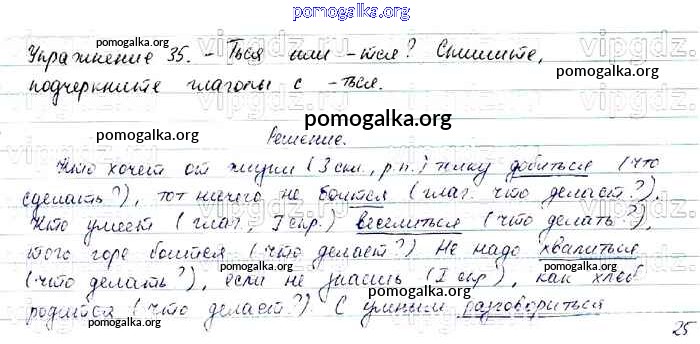 pomogalka.org
pomogalka.org
Упражнение 35. -Ться или -тся? Спишите,
pomogalka.org
подчеркните глаголы с -ться.
pomogalka.org
pomogalka.org
Решение.
pomogalka.org
Кто хочет от жизни (3 скл., р.п.) добиться (что
сделать?), тот ничего не боится (глаг. что делает?).
pomogalka.org
Кто умеет (глаг., I спр.) веселиться (что делать?),
того горе боится (что делает?) Не надо хвалиться
pomogalka.org
(что делать?), если не знаешь (I спр), как хлеб
pomogalka.org
родится (что делает?). С умным разговориться
pomogalka.org
25
vipgdz.
vipgdz.